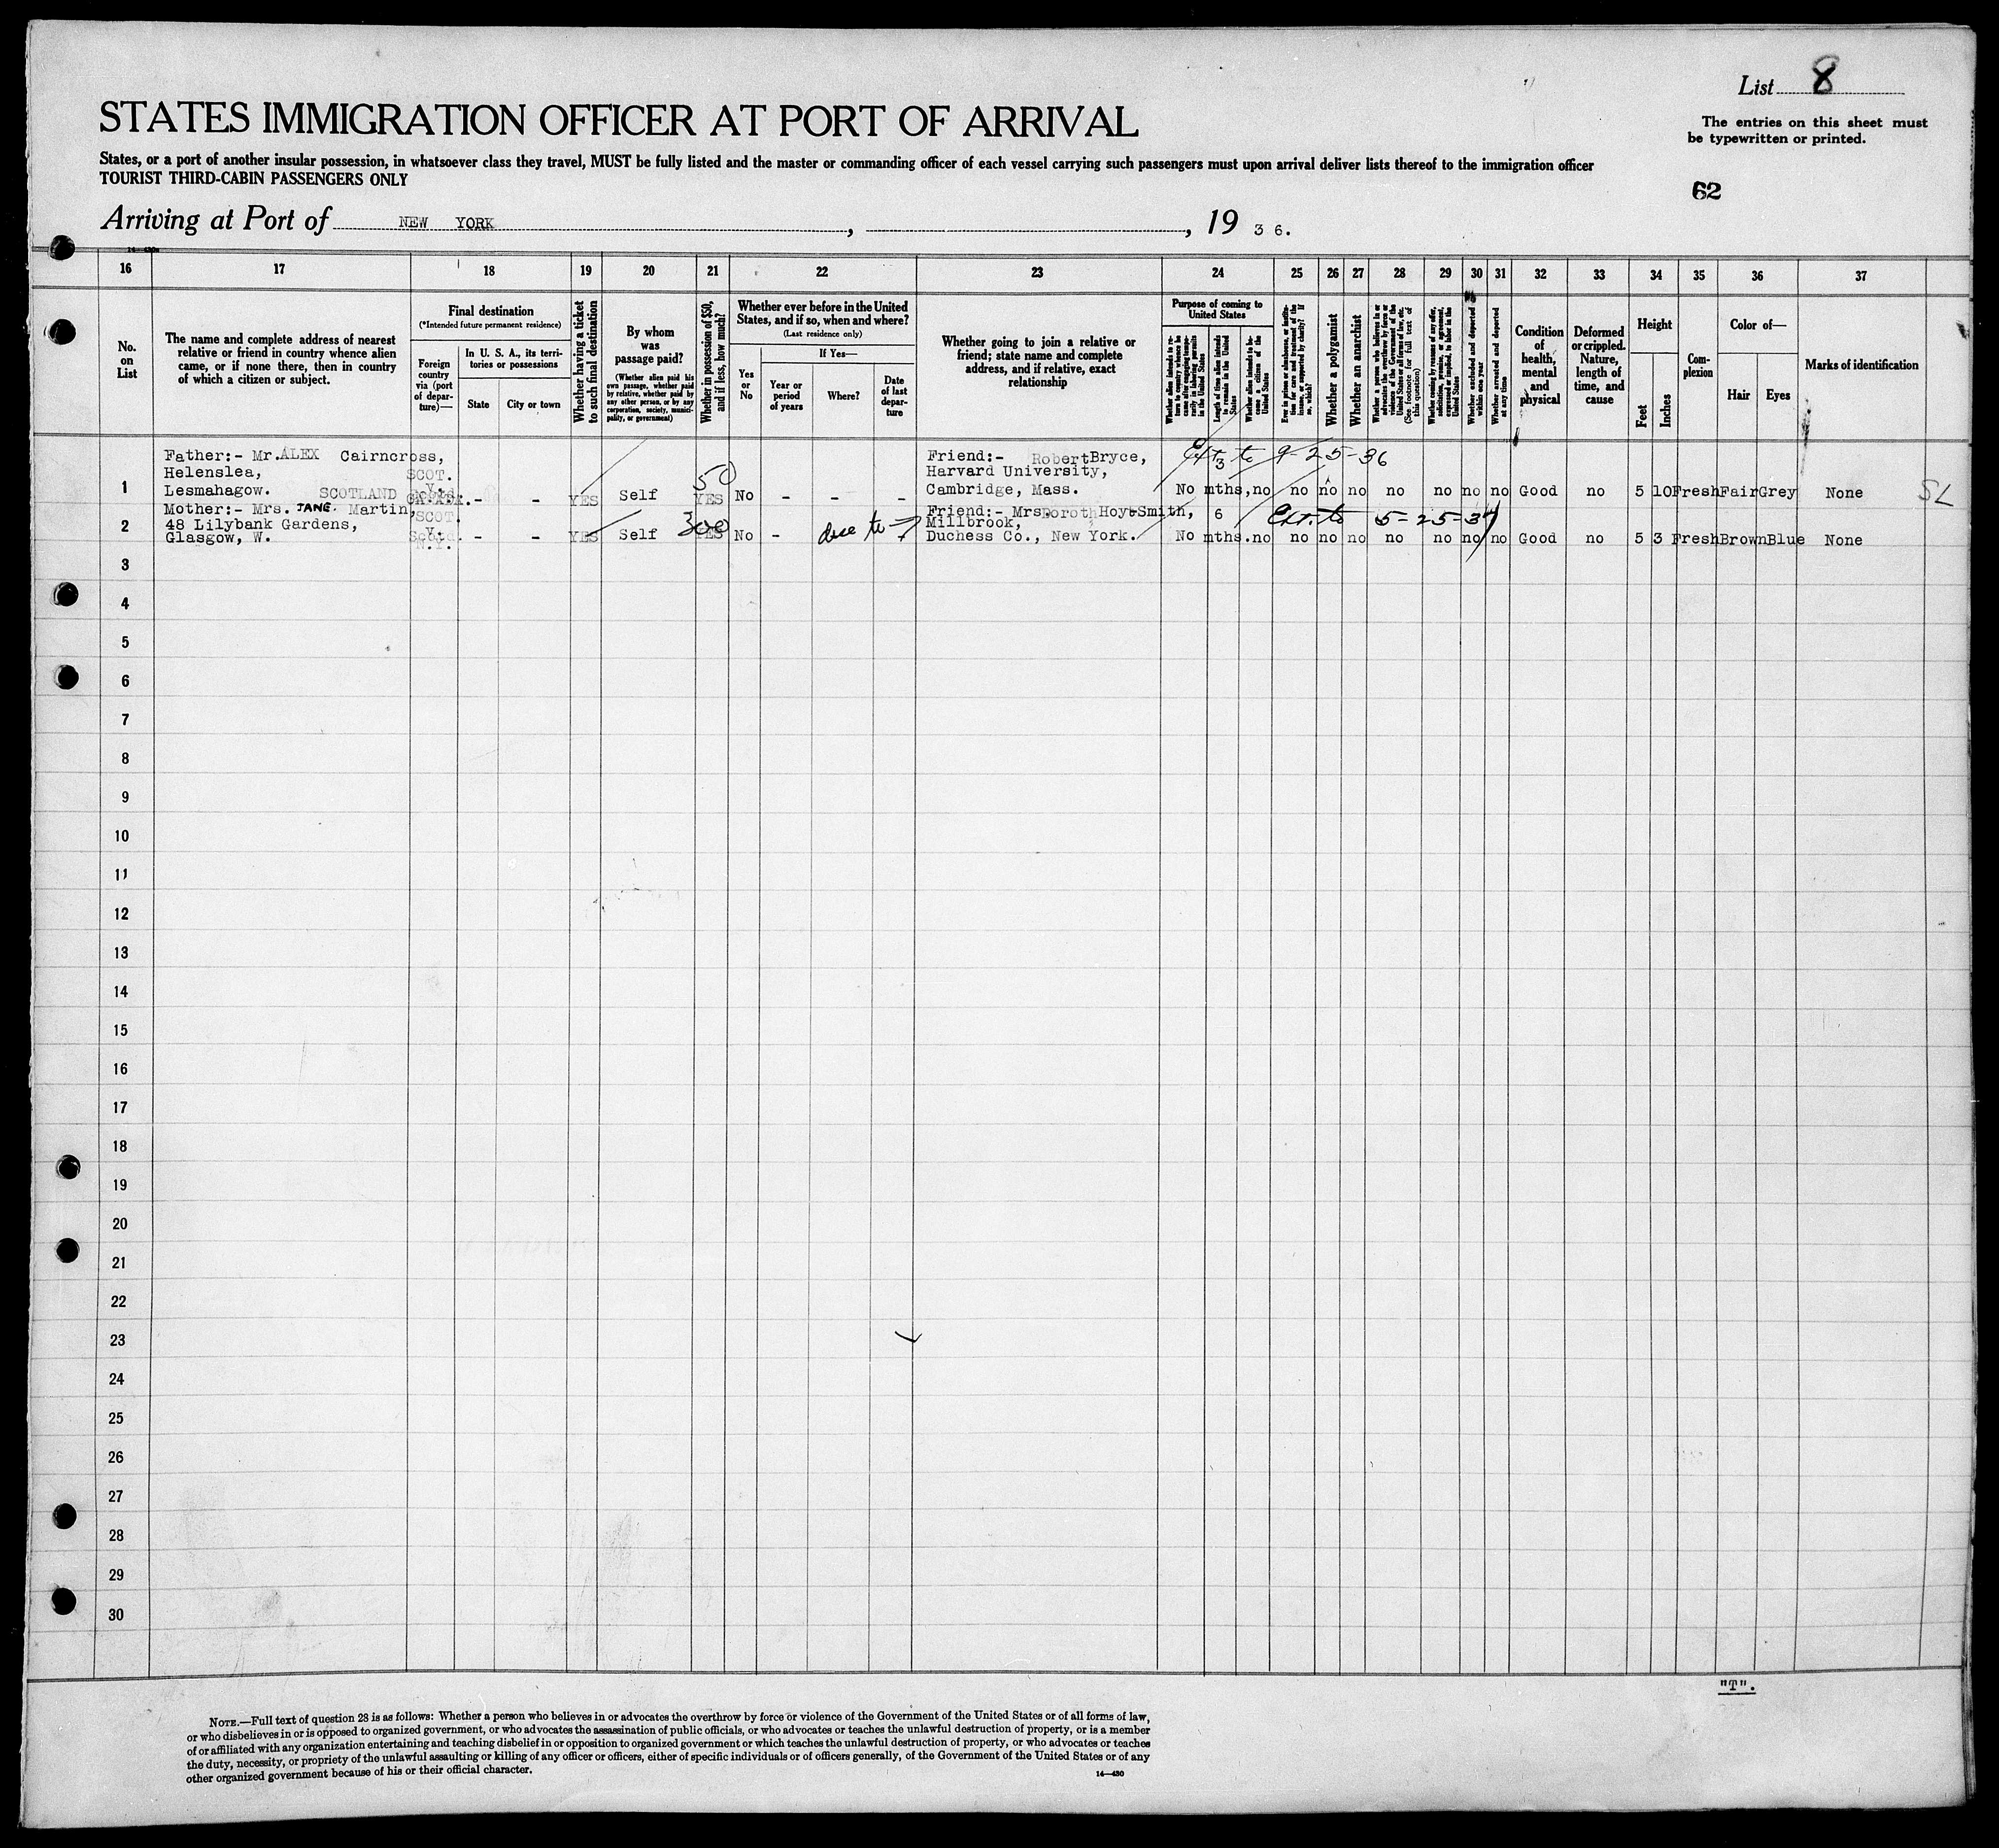 List 8
STATES IMMIGRATION OFFICER AT PORT OF ARRIVAL
The entries on this sheet must
be typewritten or printed.
States, or a port of another insular possession, in whatsoever class they travel, MUST be fully listed and the master or commanding officer of each vessel carrying such passengers must upon arrival deliver lists thereof to the immigration officer
TOURIST THIRD-CABIN PASSENGERS ONLY
62
Arriving at Port of NEW YORK , , 19 36.
16 17 18 19 20 21 22 23 24 25 26 27 28 29 30 31 32 33 34 35 36 37
No.
on
List
The name and complete address of nearest
relative or friend in country whence alien
came, or if none there, then in country
of which a citizen or subject.
Final destination
(*Intended future permanent residence)
Foreign
country
via (port
of depar-
ture)—
In U. S. A., its terri-
tories or possessions
State
City or town
Whether having a ticket
to such final destination
By whom
was
passage paid?
(Whether alien paid his
own passage, whether paid
by relative, whether paid by
any other person, or by any
corporation, society, munici-
pality, or government)
Whether in possession of $50,
and if less, how much?
Whether ever before in the United
States, and if so, when and where?
(Last residence only)
Yes
or
No
If Yes—
Year or
period
of years
Where?
Date
of last
depar-
ture
Whether going to join a relative or
friend; state name and complete
address, and if relative, exact
relationship
Purpose of coming to
United States
Whether alien intends to re-
turn to country whence he
came after engaging tempo-
rarily in laboring pursuits
in the United States
Length of time alien intends
to remain in the United
States
Whether alien intends to be-
come a citizen of the
United States
Ever in prison or almshouse, or institu-
tion for care and treatment of the
insane, or supported by charity? If
so, which?
Whether a polygamist
Whether an anarchist
Whether a person who believes in or
advocates the overthrow by force or
violence of the Government of the
United States or all forms of law, etc.
(See footnote for full text of
this question)
Whether coming by reasons of any offer,
solicitation, promise, or agreement,
expressed or implied, to labor in the
United States
Whether excluded and deported
within one year
Whether arrested and deported
at any time
Condition
of
health,
mental
and
physical
Deformed
or crippled.
Nature,
length of
time, and
cause
Height
Feet
Inches
Com-
plexion
Color of—
Hair
Eyes
Marks of identification
Father:- Mr. ALEX Cairncross,
Helenslea,
Lesmahagow. SCOTLAND
SCOT.
1 - - YES Self 50 YES No - - -
Friend:- Robert Bryce,
Harvard University,
Cambridge, Mass.
Ext to 9-25-36
3
No mths, no no no no no no no no Good no 5 10 Fresh Fair Grey None SL
Mother:- Mrs. JANE. Martin,
48 Lilybank Gardens,
Glasgow, W.
SCOT.
2 - - YES Self 300 YES No - due to -
Friend:- Mrs Doroth Hoyt-Smith,
Millbrook,
Duchess Co., New York.
6 Ext. to 5-25-37
No mths. no no no no no no no no Good no 5 3 Fresh Brown Blue None
3
4
5
6
7
8
9
10
11
12
13
14
15
16
17
18
19
20
21
22
23
24
25
26
27
28
29
30
"T".
NOTE.—Full text of question 28 is as follows: Whether a person who believes in or advocates the overthrow by force or violence of the Government of the United States or of all forms of law,
or who disbelieves in or is opposed to organized government, or who advocates the assassination of public officials, or who advocates or teaches the unlawful destruction of property, or is a member
of or affiliated with any organization entertaining and teaching disbelief in or opposition to organized government or which teaches the unlawful destruction of property, or who advocates or teaches
the duty, necessity, or propriety of the unlawful assaulting or killing of any officer or officers, either of specific individuals or of officers generally, of the Government of the United States or of any
other organized government because of his or their official character.
14—430